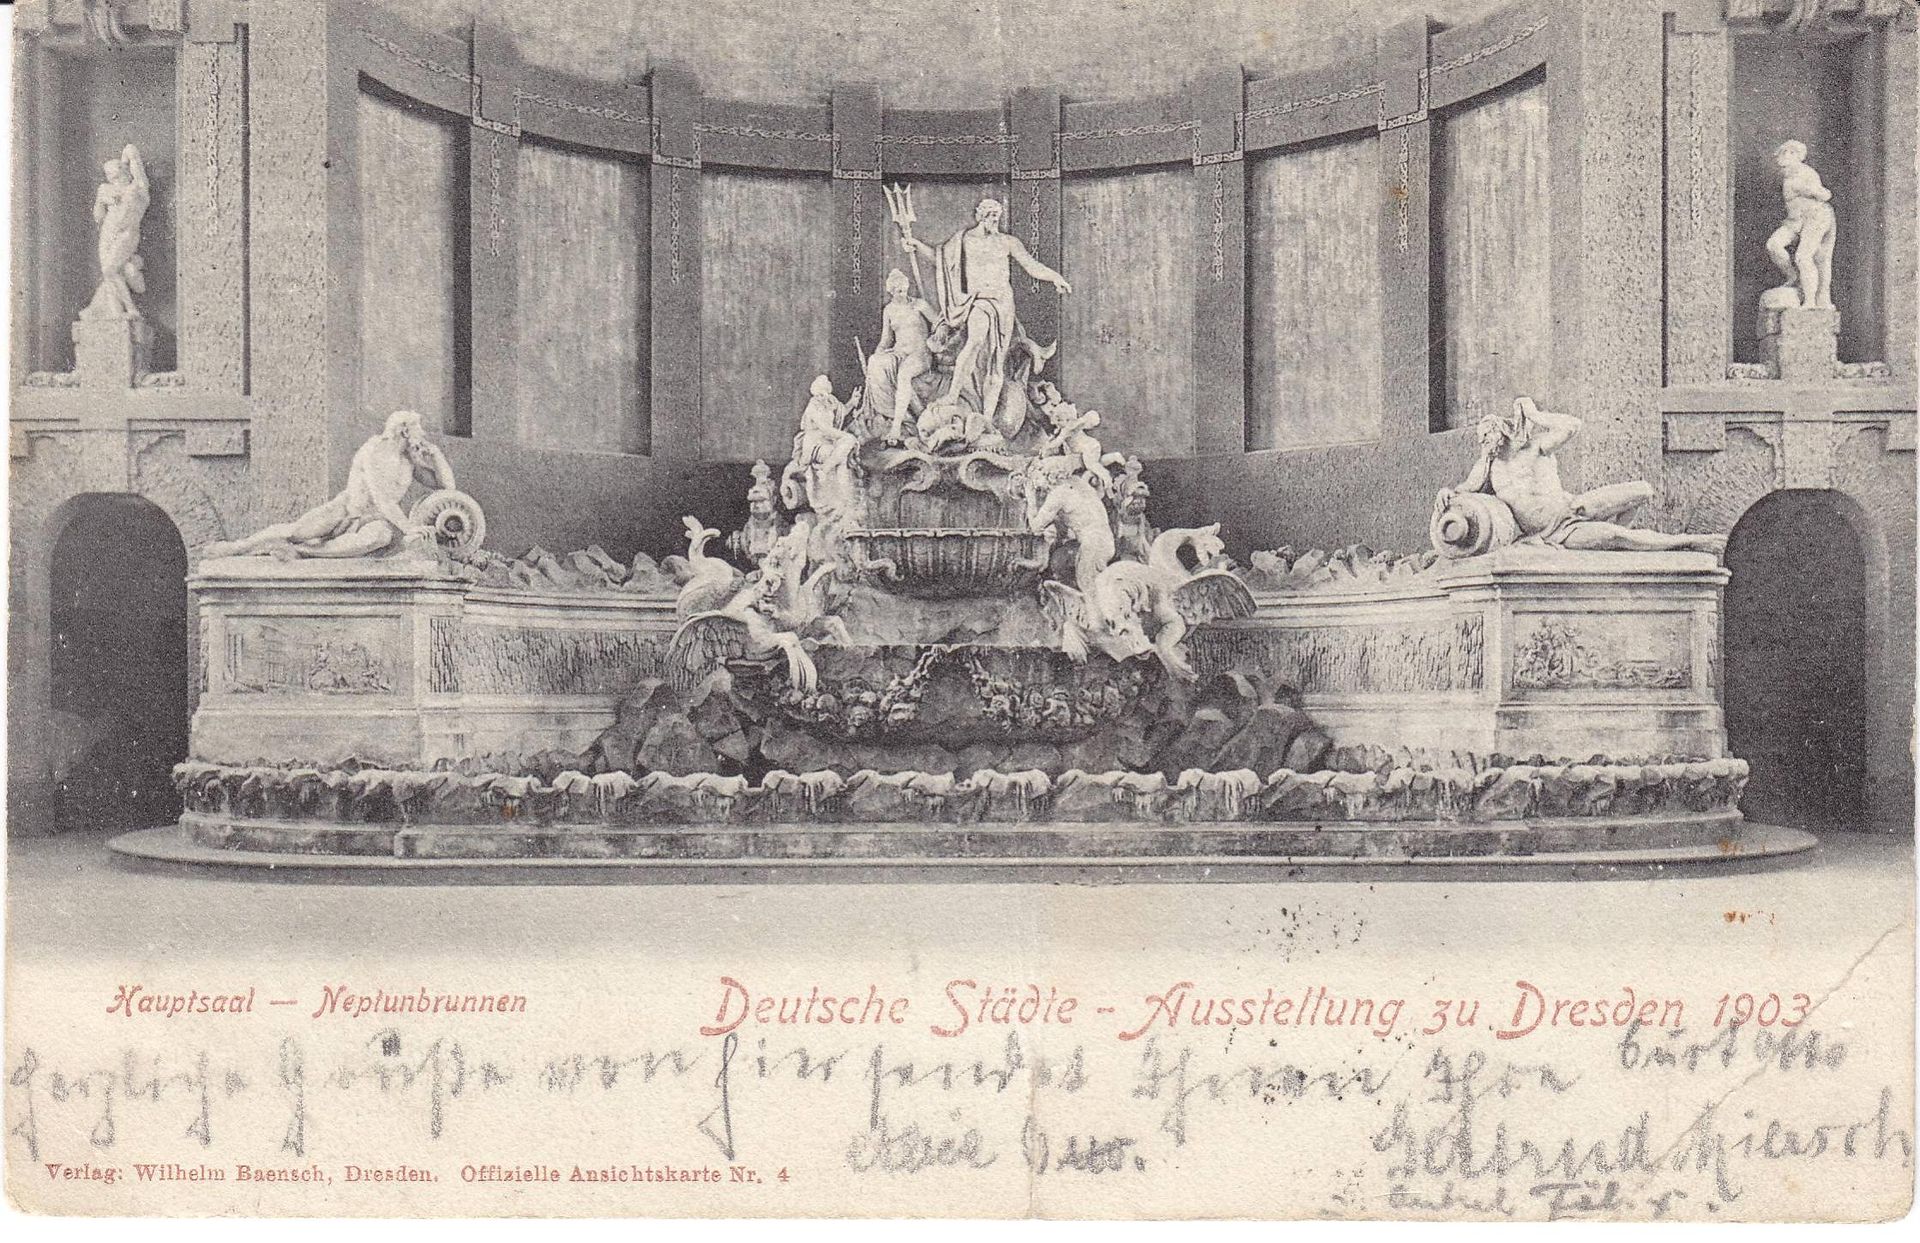 Hauptsaal — Neptunbrunnen
Deutsche Städte-Ausstellung zu Dresden 1903
Herzliche Grüße von hier sendet Ihnen Ihre
Curt Otto
Otto.
Gertrud
Verlag: Wilhelm Baensch, Dresden. Offizielle Ansichtskarte Nr. 4